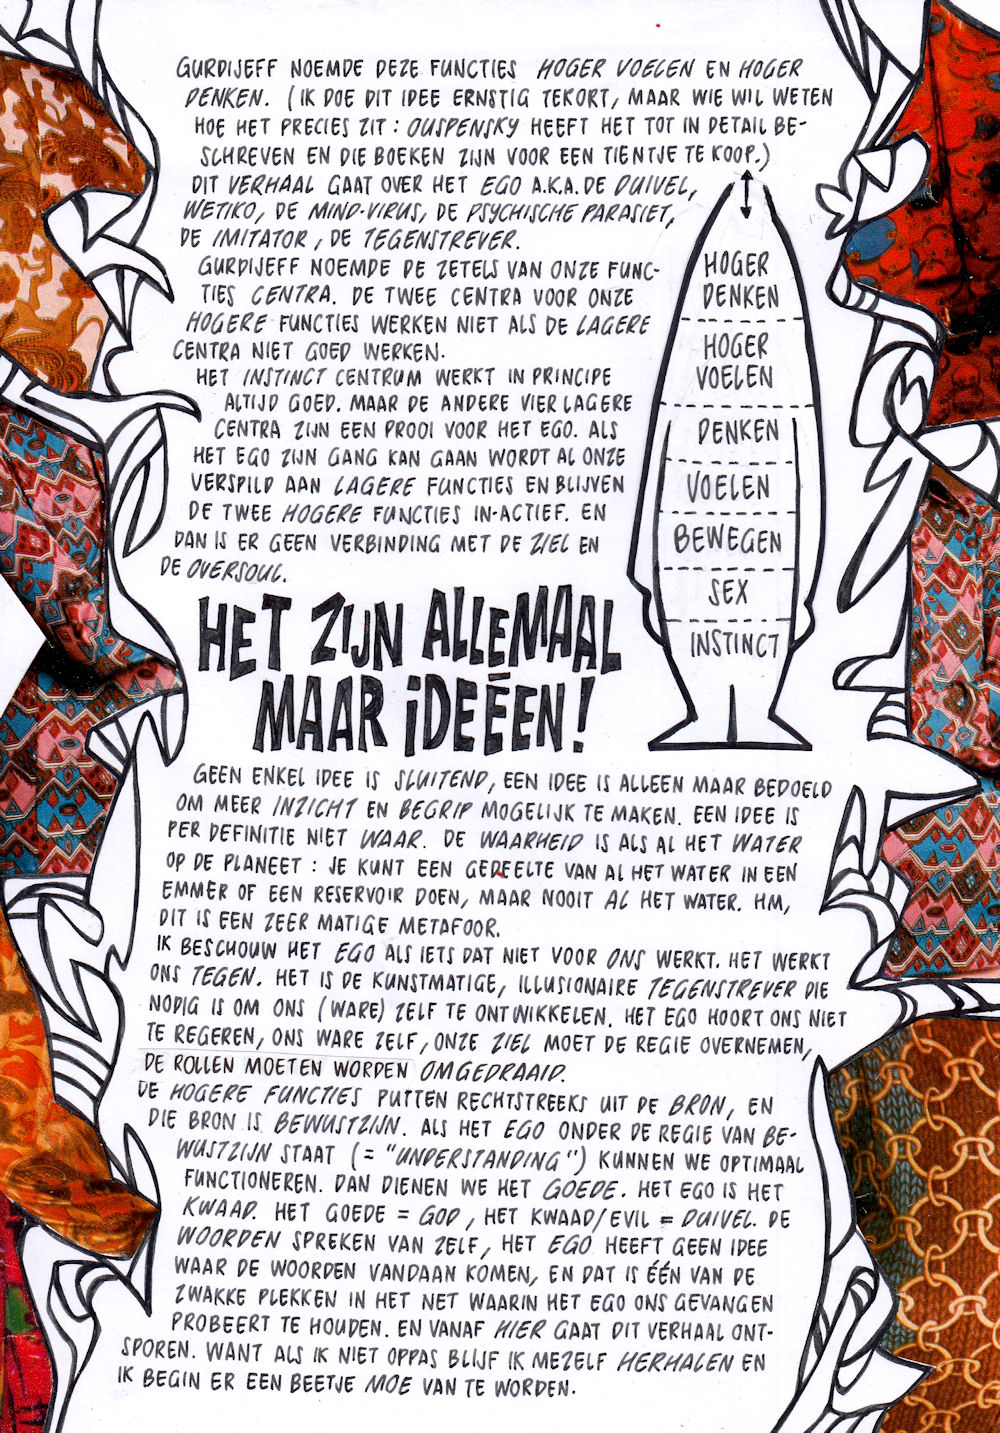 GURDIJEFF NOEMDE DEZE FUNCTIES HOGER VOELEN EN HOGER
DENKEN. (IK DOE DIT IDEE ERNSTIG TEKORT, MAAR WIE WIL WETEN
HOE HET PRECIES ZIT: OUSPENSKY HEEFT HET TOT IN DETAIL BE-
SCHREVEN EN DIE BOEKEN ZIJN VOOR EEN TIENTJE TE KOOP.)
DIT VERHAAL GAAT OVER HET EGO A.K.A. DE DUIVEL,
WETIKO, DE MIND-VIRUS, DE PSYCHISCHE PARASIET,
DE IMITATOR, DE TEGENSTREVER.
GURDIJEFF NOEMDE DE ZETELS VAN ONZE FUNC-
TIES CENTRA. DE TWEE CENTRA VOOR ONZE
HOGERE FUNCTIES WERKEN NIET ALS DE LAGERE
CENTRA NIET GOED WERKEN.
HET INSTINCT CENTRUM WERKT IN PRINCIPE
ALTIJD GOED. MAAR DE ANDERE VIER LAGERE
CENTRA ZIJN EEN PROOI VOOR HET EGO. ALS
HET EGO ZIJN GANG KAN GAAN WORDT AL ONZE
VERSPILD AAN LAGERE FUNCTIES EN BLIJVEN
DE TWEE HOGERE FUNCTIES IN-ACTIEF. EN
DAN IS ER GEEN VERBINDING MET DE ZIEL EN
DE OVERSOUL.
HOGER
DENKEN
HOGER
VOELEN
DENKEN
VOELEN
BEWEGEN
SEX
INSTINCT
HET ZIJN ALLEMAAL
MAAR IDEEËN!
GEEN ENKEL IDEE IS SLUITEND, EEN IDEE IS ALLEEN MAAR BEDOELD
OM MEER INZICHT EN BEGRIP MOGELIJK TE MAKEN. EEN IDEE IS
PER DEFINITIE NIET WAAR. DE WAARHEID IS ALS AL HET WATER
OP DE PLANEET: JE KUNT EEN GEDEELTE VAN AL HET WATER IN EEN
EMMER OF EEN RESERVOIR DOEN, MAAR NOOIT AL HET WATER. HM,
DIT IS EEN ZEER MATIGE METAFOOR.
IK BESCHOUW HET EGO ALS IETS DAT NIET VOOR ONS WERKT. HET WERKT
ONS TEGEN. HET IS DE KUNSTMATIGE, ILLUSIONAIRE TEGENSTREVER DIE
NODIG IS OM ONS (WARE) ZELF TE ONTWIKKELEN. HET EGO HOORT ONS NIET
TE REGEREN, ONS WARE ZELF, ONZE ZIEL MOET DE REGIE OVERNEMEN,
DE ROLLEN MOETEN WORDEN OMGEDRAAID.
DE HOGERE FUNCTIES PUTTEN RECHTSTREEKS UIT DE BRON, EN
DIE BRON IS BEWUSTZIJN. ALS HET EGO ONDER DE REGIE VAN BE-
WUSTZIJN STAAT (= "UNDERSTANDING") KUNNEN WE OPTIMAAL
FUNCTIONEREN. DAN DIENEN WE HET GOEDE. HET EGO IS HET
KWAAD. HET GOEDE = GOD, HET KWAAD/EVIL = DUIVEL. DE
WOORDEN SPREKEN VAN ZELF, HET EGO HEEFT GEEN IDEE
WAAR DE WOORDEN VANDAAN KOMEN, EN DAT IS ÉÉN VAN DE
ZWAKKE PLEKKEN IN HET NET WAARIN HET EGO ONS GEVANGEN
PROBEERT TE HOUDEN. EN VANAF HIER GAAT DIT VERHAAL ONT-
SPOREN. WANT ALS IK NIET OPPAS BLIJF IK MEZELF HERHALEN EN
IK BEGIN ER EEN BEETJE MOE VAN TE WORDEN.